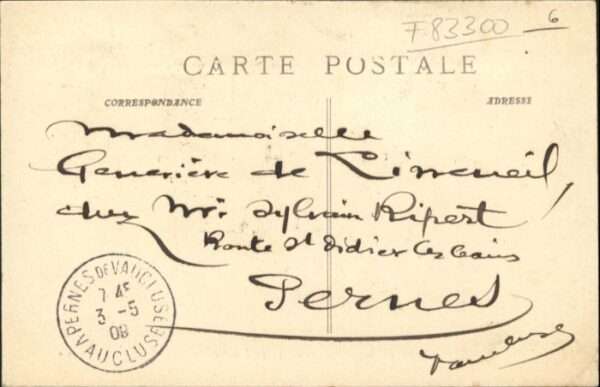 F83300
6
CARTE POSTALE
CORRESPONDANCE
ADRESSE
Mademoiselle
Geneviève de Limeuil,
chez Mr Sylvain Ripert
Route St Didier les bains
Pernes
Vaucluse
PERNES DE VAUCLUSE
7 45
3 - 5
08
VAUCLUSE